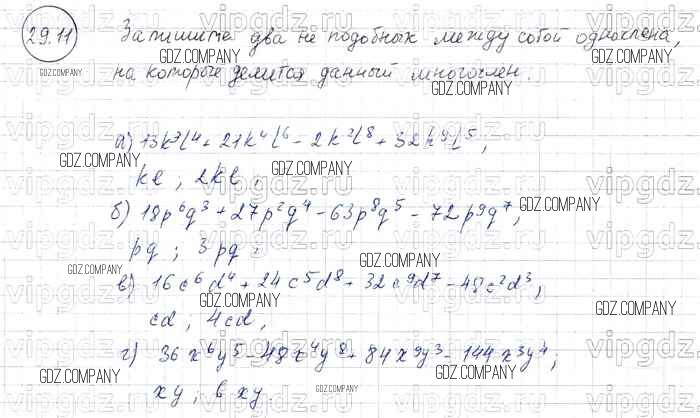 29.11 Запишите два не подобных между собой одночлена,
на которые делится данный многочлен.
а) 13k³l⁴ + 21k⁴l⁶ - 2k²l⁸ + 32k⁹l⁵,
kl ; 2kl ,
б) 18p⁶q³ + 27p²q⁴ - 63p⁸q⁵ - 72p⁹q⁷,
pq ; 3pq ,
в) 16c⁶d⁴ + 24c⁵d⁸ + 32c⁹d⁷ - 48c²d³,
cd ; 4cd ,
г) 36x⁶y⁵ - 48x⁴y⁸ + 84x⁹y³ - 144x³y⁴ ;
xy ; 6xy.
vipgdz.ru
GDZ.COMPANY